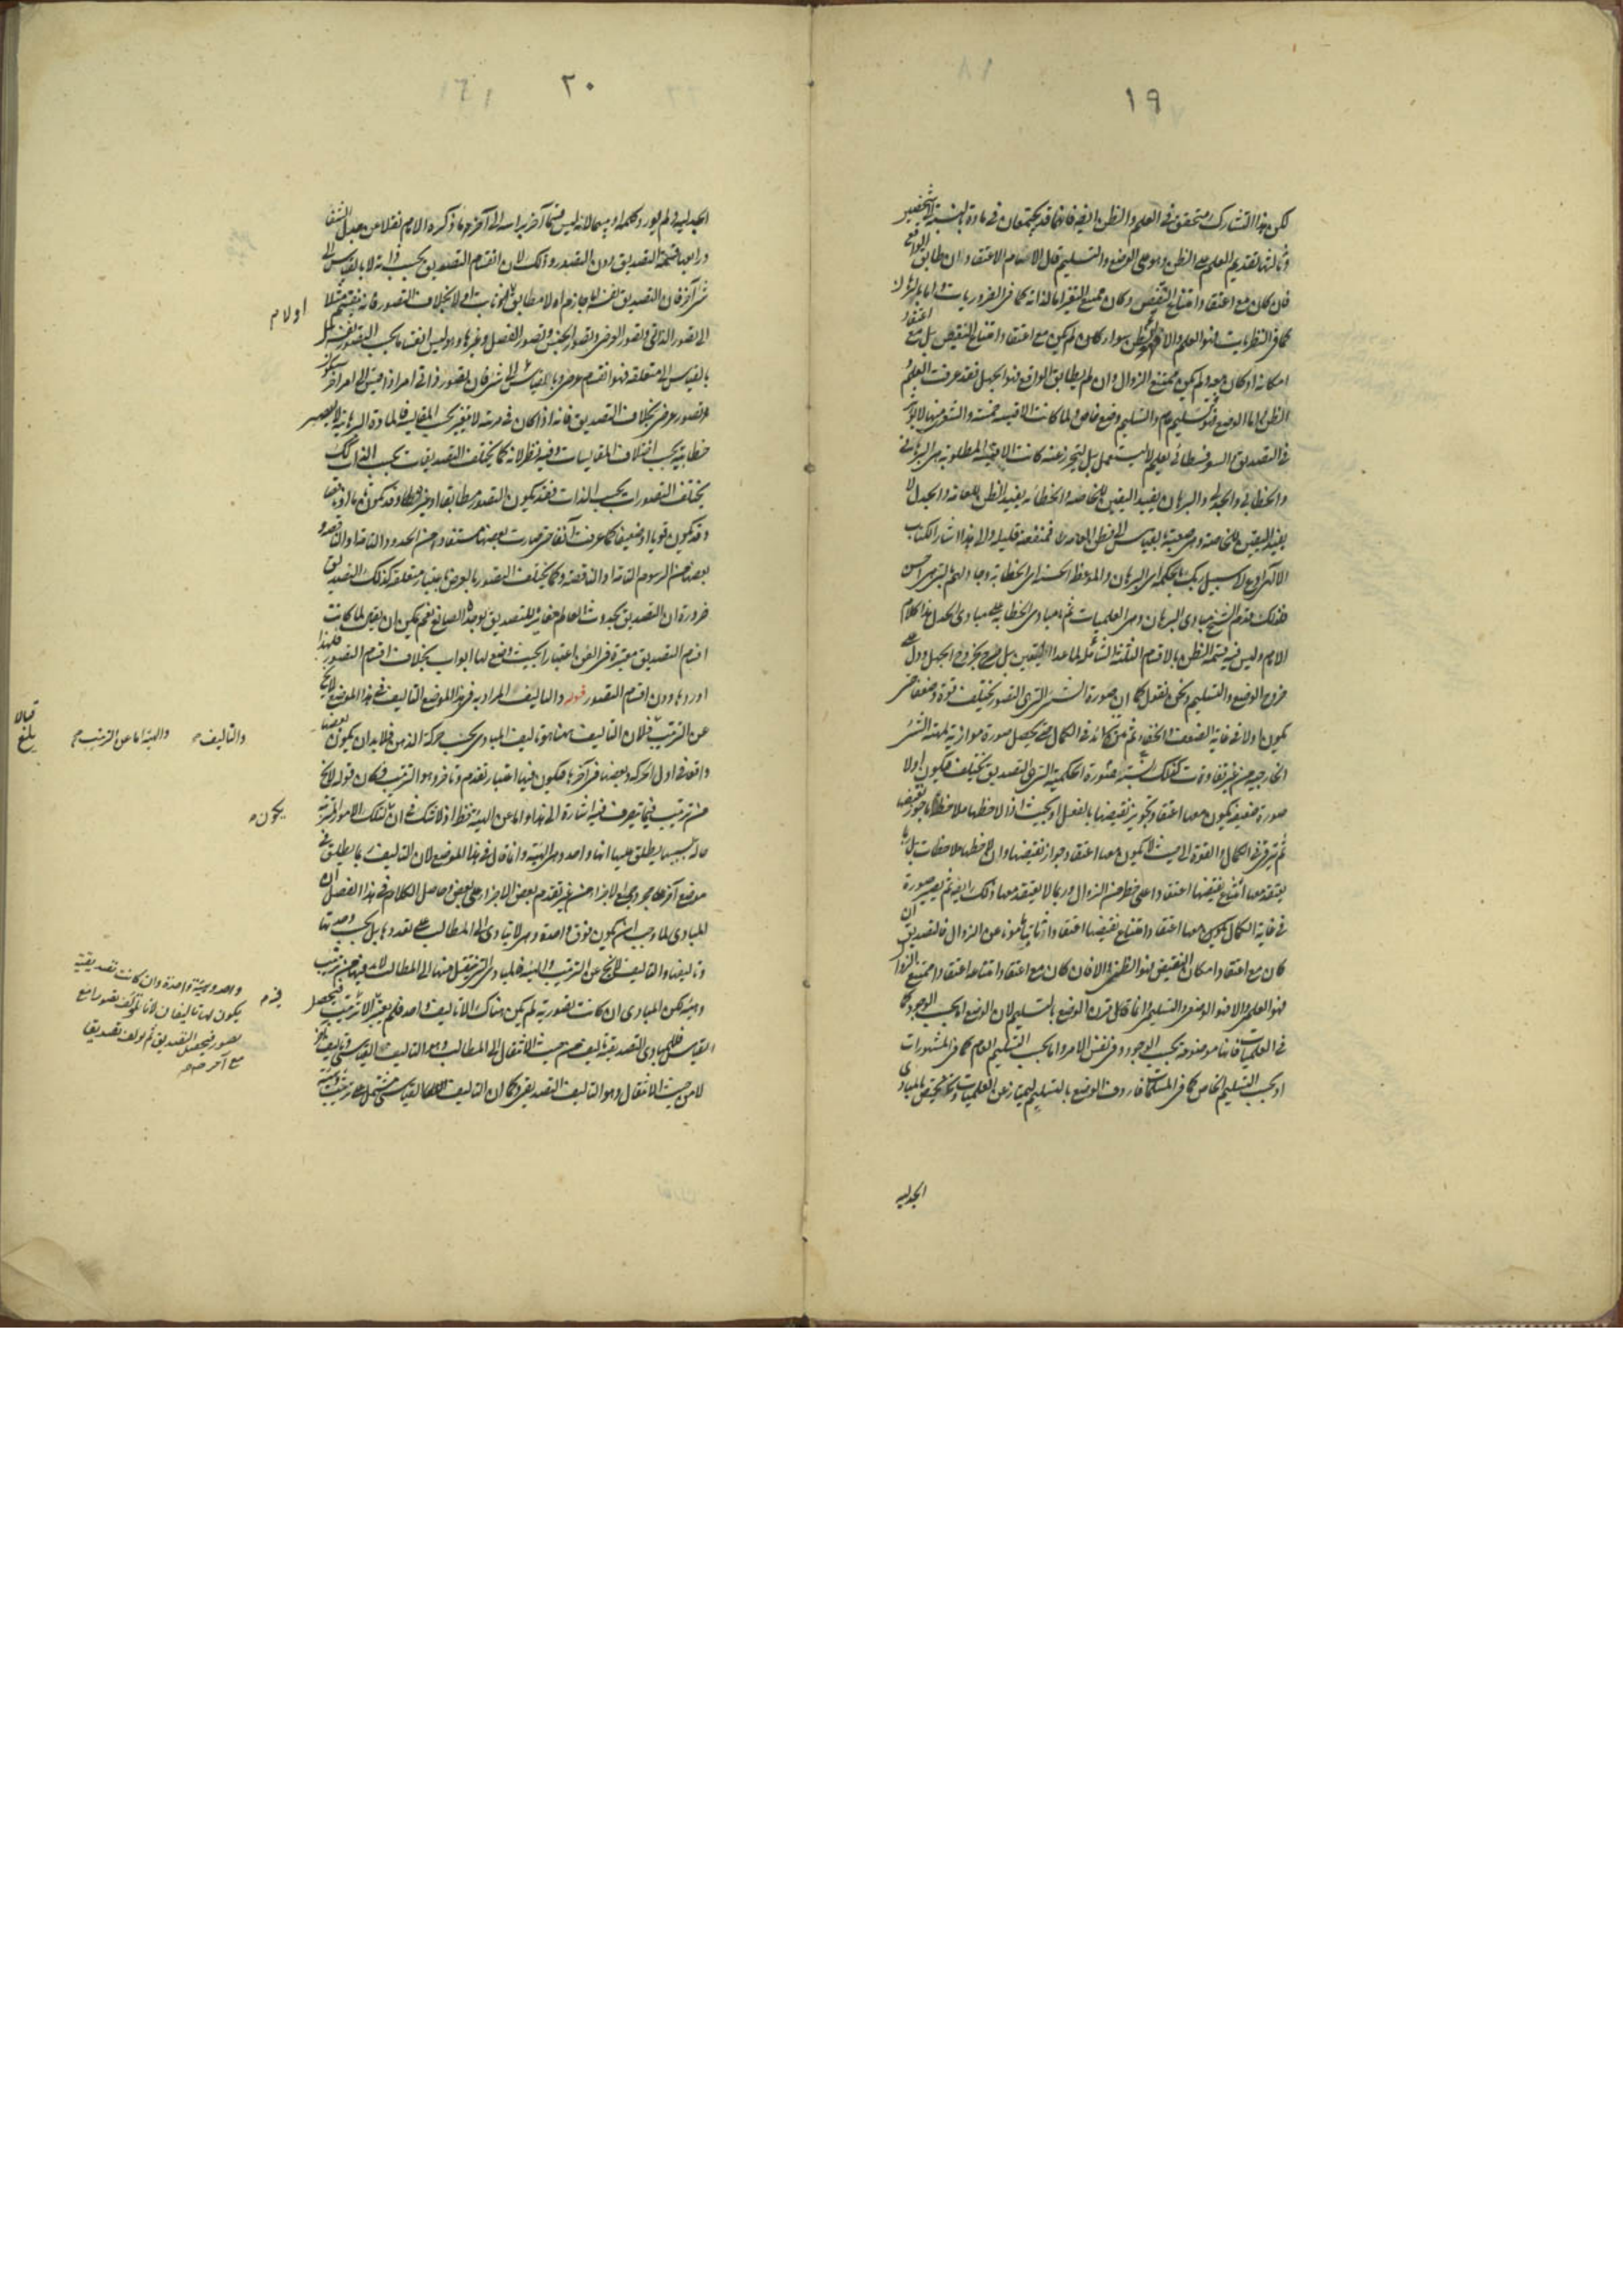 ١٩
لكن هذا التشارك متحقق في العلم والظن ايضا فانهما قد يجتمعان في مادة بالنسبة الى شخصين
وثالثها تقديم العلم على الظن وهو على الوضع والتسليم قال الامام الاعتقاد ان طابق الواقع
فان كان مع اعتقاد امتناع النقيض وكان ممتنع التغير اما لذاته كما في الضروريات واما بالبرهان
كما في النظريات فهو العلم والا فهو الظن سواء كان لم يكن مع اعتقاد امتناع النقيض بل مع اعتقاد
امكانه او كان معه ولم يكن ممتنع الزوال وان لم يطابق الواقع فهو الجهل فقد عرفت العلم و
الظن اما الوضع فتسليم عام والتسليم وضع خاص ولما كانت الاقيسة خمسة والشعر منها لا يؤثر
في التصديق والسوفسطائي تعلم لا ليستعمل بل ليتحرز عنه كانت الاقيسة المطلوبة هي البرهاني
والخطابي والجدلي والبرهان يفيد اليقين للخاصة والخطابة يفيد الظن للعامة والجدل لا
يفيد اليقين للخاصة وهي صعبة بالقياس الى فطن العامة فمنفعته قليلة والى هذا اشار الكتاب
الالهي ادع الى سبيل ربك بالحكمة اي البرهان والموعظة الحسنة اي الخطابة وجادلهم بالتي هي احسن
فلذلك قدم الشيخ مبادى البرهان وهي العلميات ثم مبادى الخطابة على مبادى الجدل هذا كلام
الامام وليس فيه قسمة الظن بالاقسام الثلثة الشاملة لما عدا اليقين بل صرح بخروج الجهل ودل على
خروج الوضع والتسليم ونحن نقول كما ان صورة الشيء التي هي التصور يختلف قوة وضعفا حتى
يكون اولا في غاية الضعف والخفاء ثم يتزايد في الكمال حتى يحصل صورة موازية لهيئة الشيء
الخارجية من غير تفاوت كذلك النسبة فصورة الحكمية التي هي التصديق يختلف فيكون اولا
صورة ضعيفة يكون معها اعتقاد تجويز نقيضها بالفعل او بحيث اذا لاحظها ملاحظ ما جوز نقيضها
ثم يترقى في الكمال والقوة الى حيث لا يكون معها اعتقاد جواز نقيضها وان لاحظها ملاحظات بل ربما
يعتقد معها امتناع نقيضها اعتقادا على خطر من الزوال وربما لا يعتقد معها ذلك ايضا ثم يصير صورة
في غاية الكمال يكون معها اعتقاد امتناع نقيضها اعتقادا ثابتا مأمونا عن الزوال فالتصديق ان
كان مع اعتقاد امكان النقيض فهو الظني والا فان كان مع اعتقاد امتناعه اعتقادا ممتنع الزوال
فهو العلمي والا فهو الوضعي والتسليمي وانما قال قرن الوضع بالتسليم لان الوضع اما بحسب الوجود كما
في العلميات فانها موضوعة بحسب الوجود وفي نفس الامر واما بحسب التسليم العام كما في المشهورات
او بحسب التسليم الخاص كما في المسلمات فاردف الوضع بالتسليم ليمتاز عن العلميات ويختص بالمبادى
الجدلية
٢٠
الجدلية ولم يورد كلمة او بينهما لانه ليس قسما آخر برأسه الى آخر ما ذكره الامام نقلا عن جدل الشفا
ورابعها قسمة التصديق دون التصور وذلك لان انقسام التصديق بحسب ذاته لا بالقياس الى
شيء آخر فان التصديق نفسه اما جازم او لا مطابق او لا ثابت او لا بخلاف التصور فانه ينقسم مثلا
الى تصور الذاتي وتصور العرضي وتصور الجنس وتصور الفصل وغيرها وهو ليس انقساما بحسب التصور نفسه بل
بالقياس الى متعلقه فهو انقسام عرضي وبالقياس الى شيء فان تصور ذاتي امر اذا قيس الى امر آخر يكون
تصور عرضي بخلاف التصديق فانه اذا كان في مرتبة لا يتغير بحسب المقايسة فالمادة البرهانية لا تصير
خطابية بحسب اختلاف المقايسات وفيه نظر لانه كما يختلف التصديقات بحسب الذات كذلك
يختلف التصورات بحسب الذات فقد يكون التصور مطابقا وغير مطابق وقد يكون تاما او ناقصا
وقد يكون قويا او ضعيفا كما عرفت آنفا حتى صارت بعضها مستفادة من الحدود التامة او الناقصة و
بعضها من الرسوم التامة او الناقصة وكما يختلف التصور بالعرض باعتبار متعلقه كذلك التصديق
ضرورة ان التصديق بحدوث العالم مغاير للتصديق بوجود الصانع نعم يمكن ان يقال لما كانت
اقسام التصديق معتبرة في الفن باعتبارها بحيث وضع لها ابواب بخلاف اقسام التصور فلهذا
اوردها دون اقسام التصور قوله والتاليف المراد به في هذا الموضع التاليف في هذا الموضع لا يخ
عن الترتيب فلان التاليف ههنا هو تاليف المبادى بحسب حركة الذهن فلا بد ان يكون بعضها
واقعا في اول الحركة وبعضها في آخرها فيكون فيها اعتبار تقدم وتأخر وهو الترتيب فكان قوله لا يخ
من ترتيب فيما يتصرف فيه اشارة الى هذا واما عن الهيئة فظ اذ لا شك في ان لتلك الامور المرتبة
حالة بسببها يطلق عليها انها واحد وهي الهيئة وانما قال في هذا الموضع لان التاليف ربما يطلق في
موضع آخر على مجرد جمع الاجزاء من غير تقدم بعض الاجزاء على بعض وحاصل الكلام في هذا الفصل ان
المبادى لما وجب ان يكون فوق واحدة وهي لا يتادى الى المطالب على تعددها بل بحسب وحدتها
وتاليفها والتاليف لا يخ عن الترتيب والهيئة فللمبادى التي ينتقل منها الى المطالب لا بد فيها من ترتيب
وهيئة لكن المبادى ان كانت تصورية لم يكن هناك الا تاليف واحد فلم يعتبر الا ترتيب فيحصل
القياس فللمبادى التصديقية تاليف من حيث الانتقال الى المطالب وهو التاليف القياسي وتاليف آخر
لا من حيث الانتقال وهو التاليف التصديقي وكما ان التاليف القياسي مشتمل على ترتيب وهيئة
او لا م
والتاليف
والهيئة اما عن الترتيب
قبالا
بلغ
يكون
فيه م
واحد وهيئة واحدة وان كانت تصديقية
يكون لها تاليفان لانا نؤلف تصورا مع
تصور فيحصل التصديق ثم نؤلف تصديقا
مع آخر صح